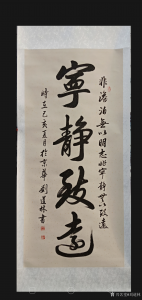 寧静致遠
非澹泊無以明志非寧静無以致遠
時在己亥夏月於京華劉道林書